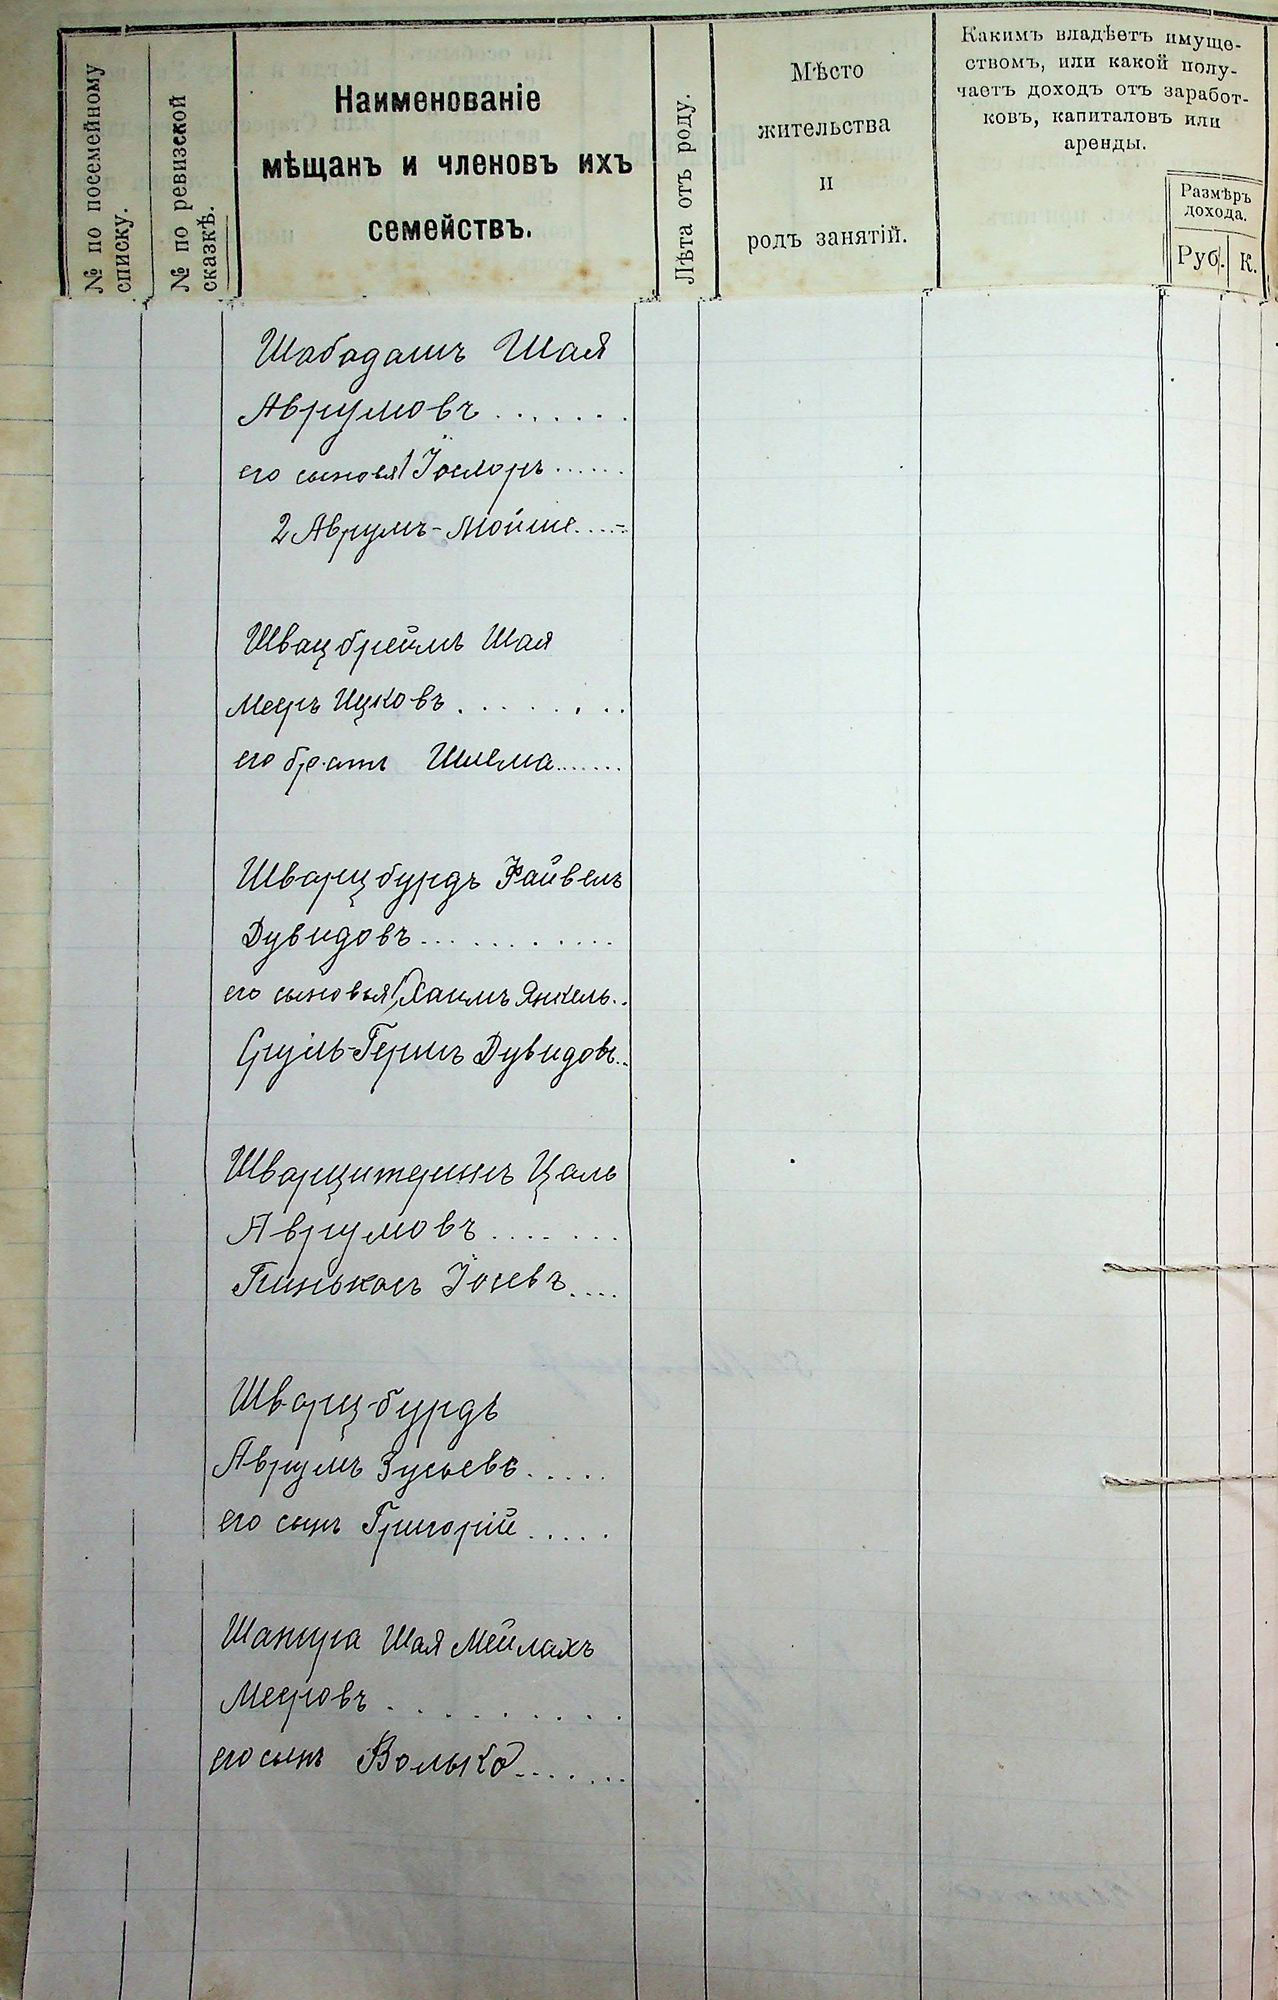 № по посемейному
списку.
№ по ревизской
сказкѣ.
Наименованіе
мѣщанъ и членовъ ихъ
семействъ.
Лѣта отъ роду.
Мѣсто
жительства
и
родъ занятій.
Какимъ владѣетъ имуще-
ствомъ, или какой полу-
чаетъ доходъ отъ заработ-
ковъ, капиталовъ или
аренды.
Размѣръ
дохода.
Руб. К.
Шабадашъ Шая
Аврумовъ
его сыновья 1
2 Аврумъ-Мойше
Шая
Мееръ Ицковъ
его братъ Шлема
Шварцбурдъ Файвель
Дувидовъ
его сыновья Хаимъ Янкель
Сруль-Гершъ Дувидовъ
Цаль
Аврумовъ
Пинькасъ Іосевъ
Шварц-бурдъ
Аврумъ Зусьевъ
его сынъ Григорій
Шая Мейлахъ
Мееровъ
его сынъ Волько